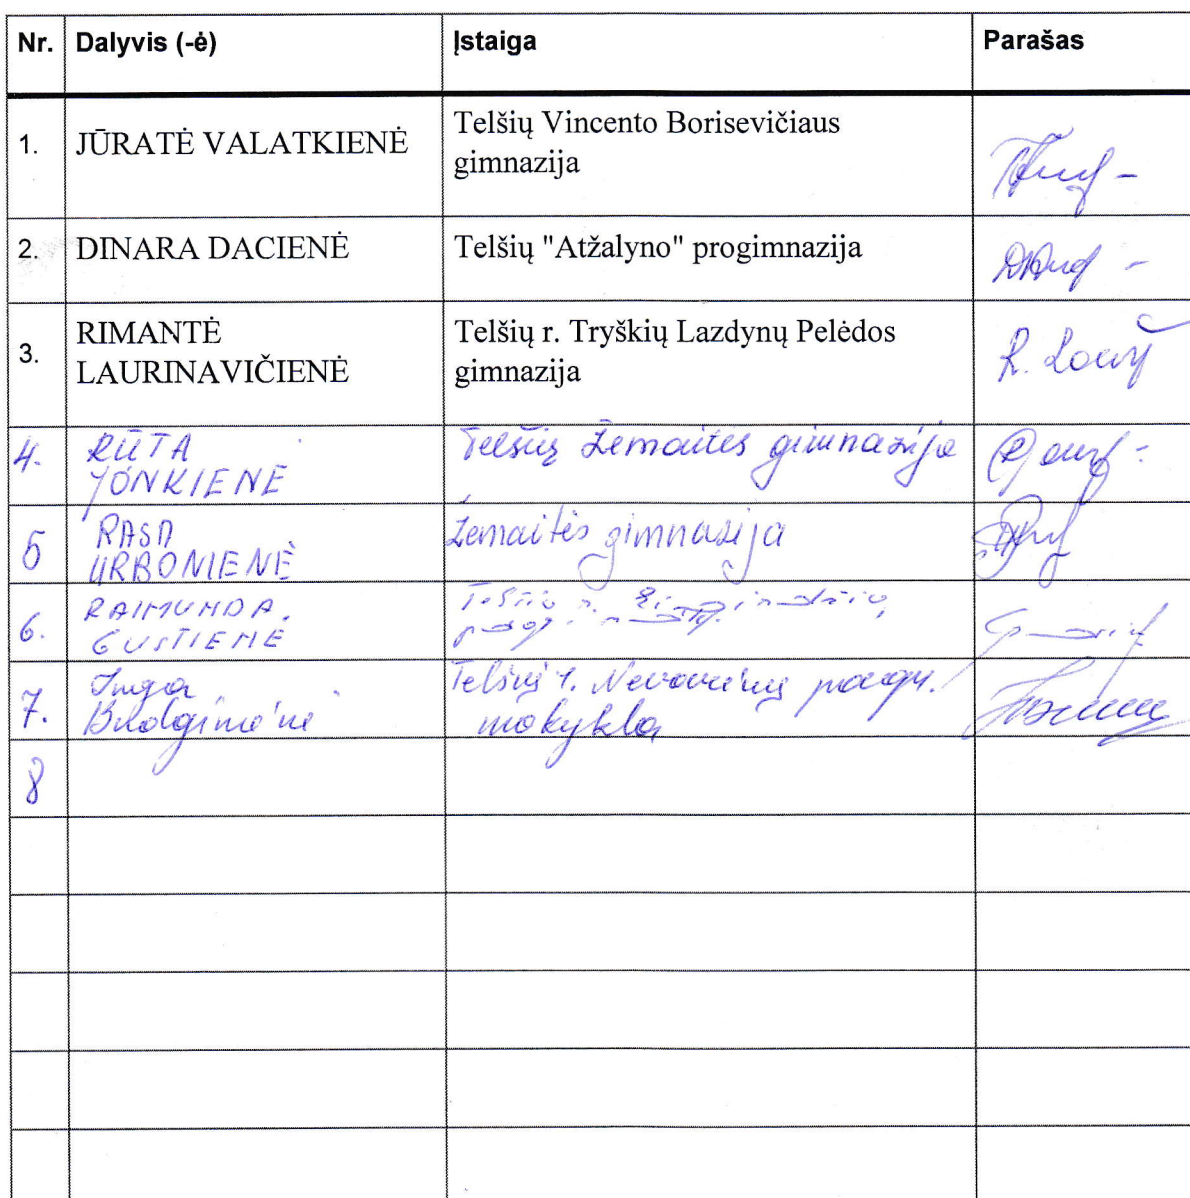 Nr. Dalyvis (-ė) Įstaiga Parašas
1. JŪRATĖ VALATKIENĖ Telšių Vincento Borisevičiaus
gimnazija
2. DINARA DACIENĖ Telšių "Atžalyno" progimnazija
3. RIMANTĖ
LAURINAVIČIENĖ Telšių r. Tryškių Lazdynų Pelėdos
gimnazija
4. RŪTA
JONKIENĖ Telšių Žemaitės gimnazija
5 RASA
URBONIENĖ Žemaitės gimnazija
6. RAIMUNDA
GUSTIENĖ
7. Inga
Telšių r. Nevarėnų pagr.
mokykla
8